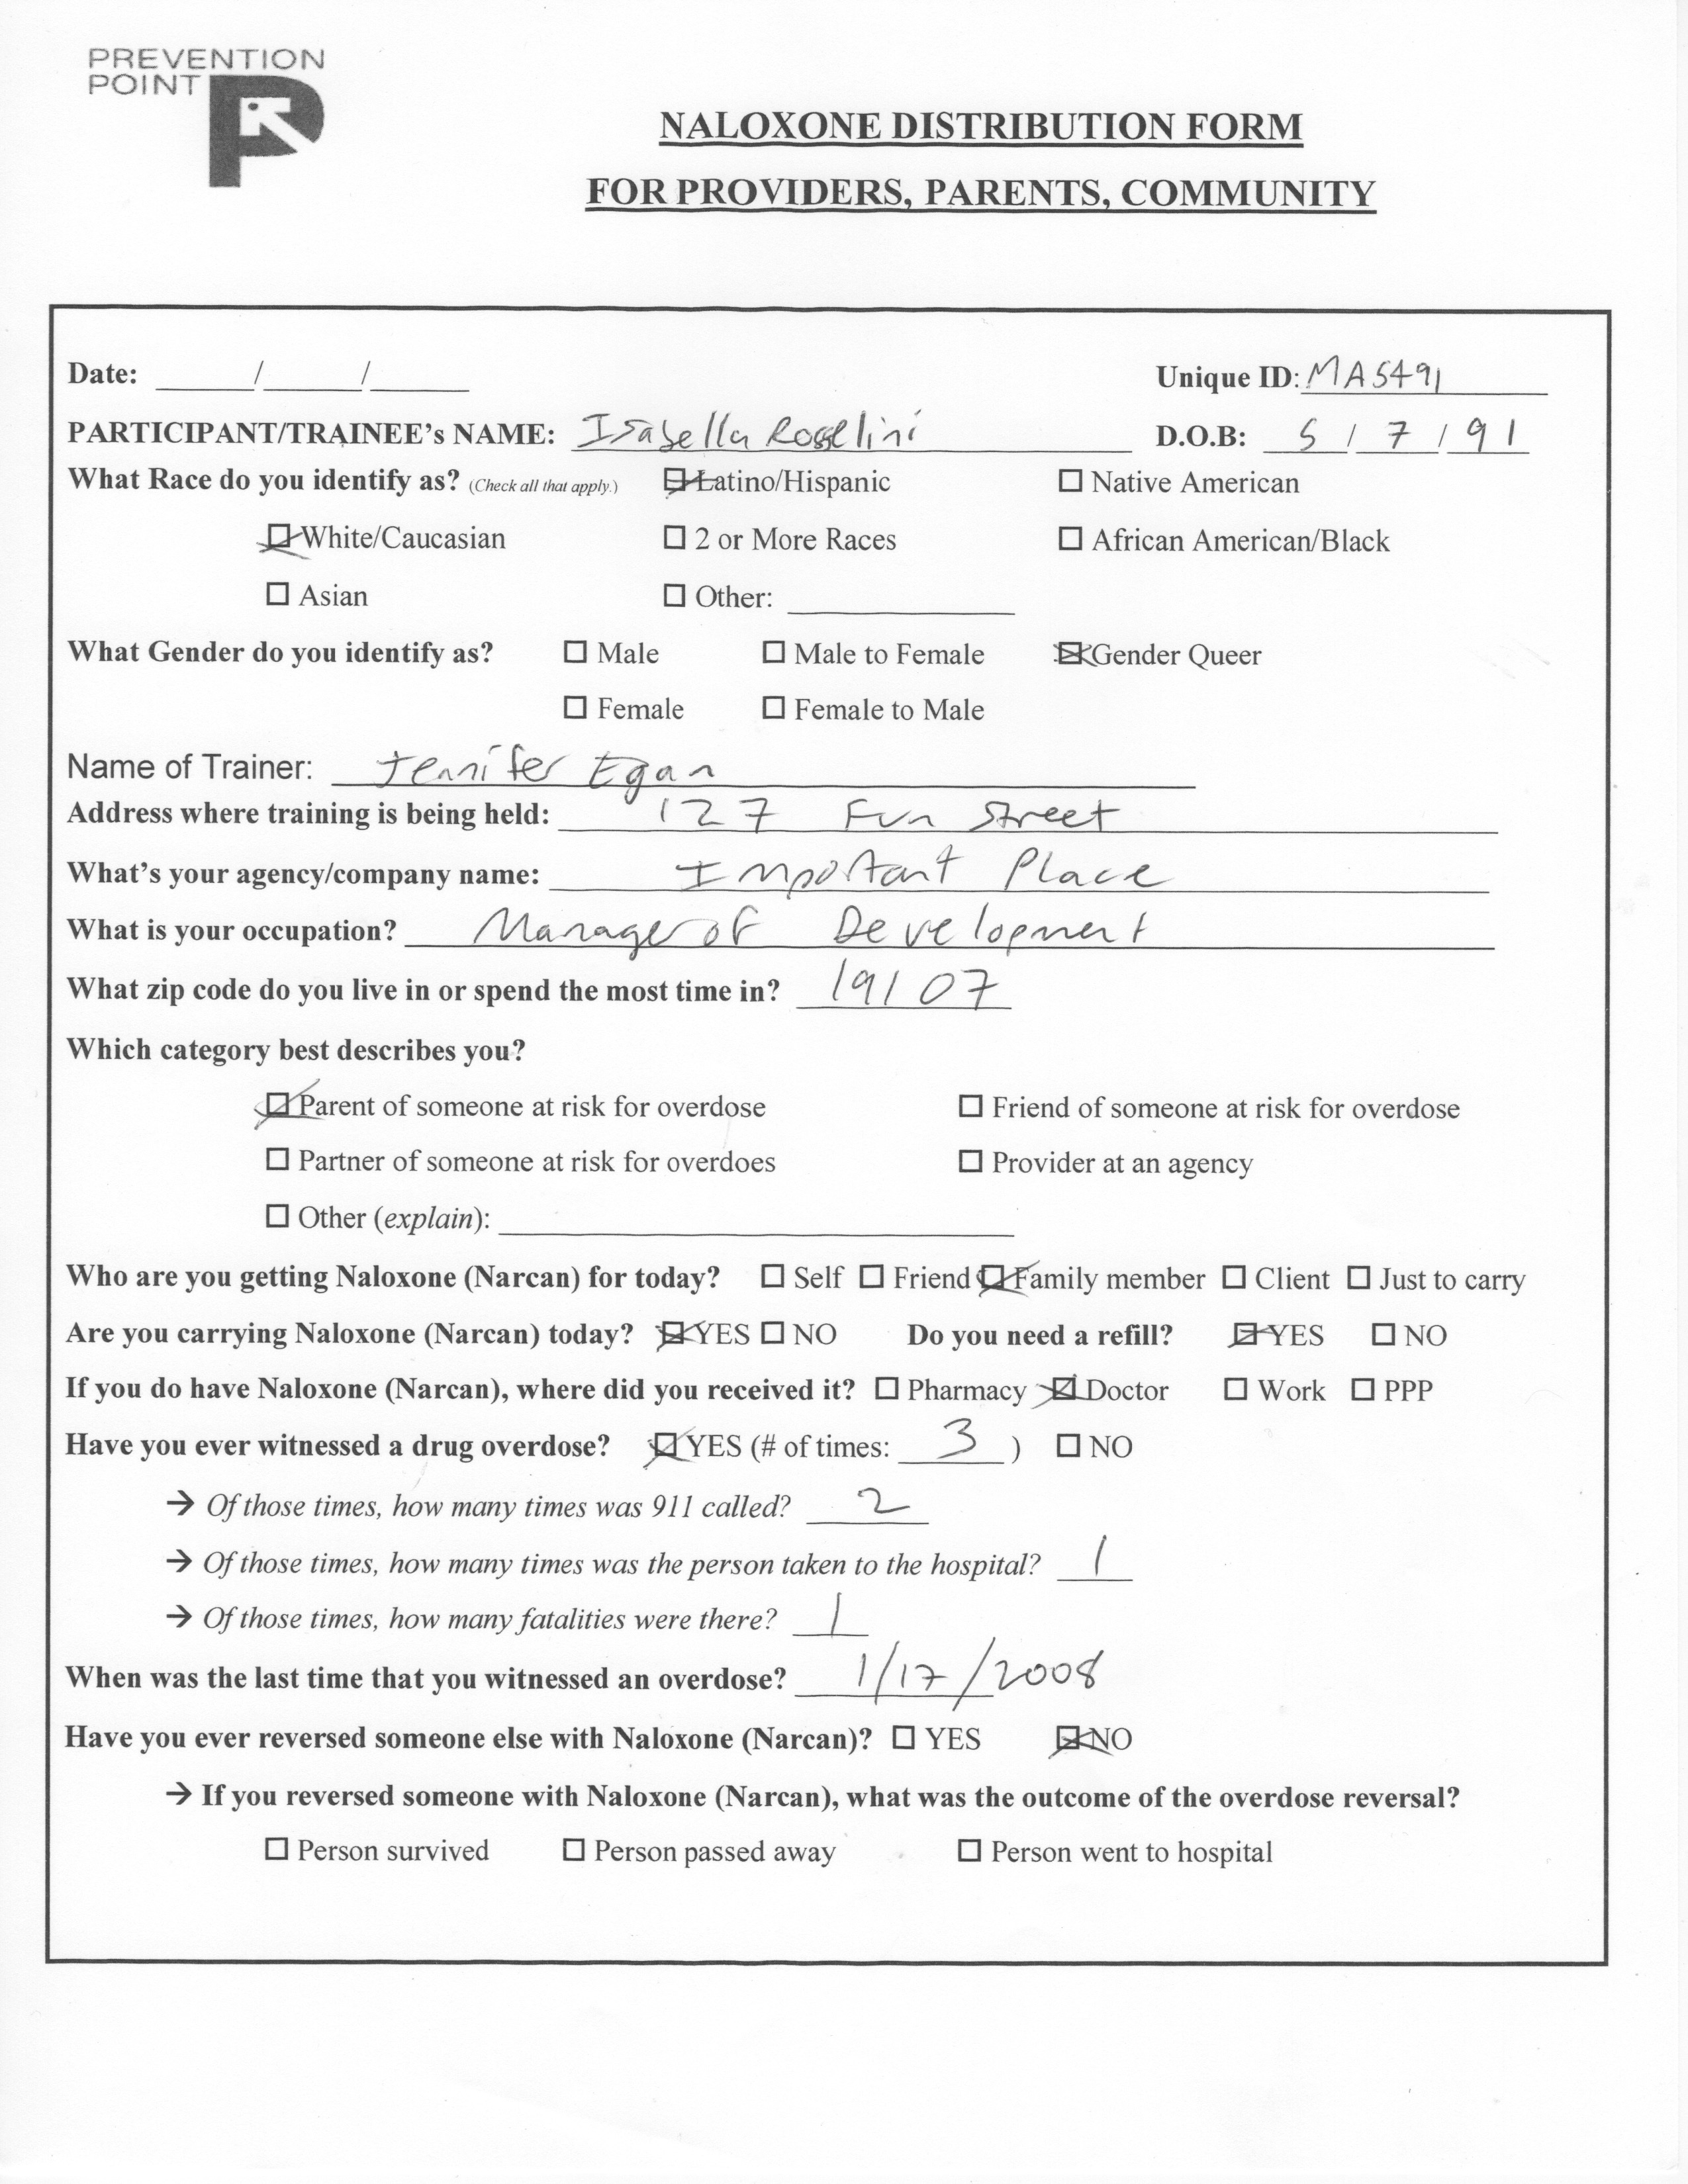 PREVENTION
POINT
NALOXONE DISTRIBUTION FORM
FOR PROVIDERS, PARENTS, COMMUNITY
Date: ______/______/______ Unique ID: MAS491
PARTICIPANT/TRAINEE's NAME: Isabella Rosselini D.O.B: 5 / 7 / 91
What Race do you identify as? (Check all that apply.) ☒ Latino/Hispanic ☐ Native American
☒ White/Caucasian ☐ 2 or More Races ☐ African American/Black
☐ Asian ☐ Other: ______
What Gender do you identify as? ☐ Male ☐ Male to Female ☒ Gender Queer
☐ Female ☐ Female to Male
Name of Trainer: Jennifer Egan
Address where training is being held: 127 Fun Street
What's your agency/company name: Important Place
What is your occupation? Manager of Development
What zip code do you live in or spend the most time in? 19107
Which category best describes you?
☒ Parent of someone at risk for overdose ☐ Friend of someone at risk for overdose
☐ Partner of someone at risk for overdoes ☐ Provider at an agency
☐ Other (explain): ______
Who are you getting Naloxone (Narcan) for today? ☐ Self ☐ Friend ☒ Family member ☐ Client ☐ Just to carry
Are you carrying Naloxone (Narcan) today? ☒ YES ☐ NO Do you need a refill? ☒ YES ☐ NO
If you do have Naloxone (Narcan), where did you received it? ☐ Pharmacy ☒ Doctor ☐ Work ☐ PPP
Have you ever witnessed a drug overdose? ☒ YES (# of times: 3 ) ☐ NO
→ Of those times, how many times was 911 called? 2
→ Of those times, how many times was the person taken to the hospital? 1
→ Of those times, how many fatalities were there? 1
When was the last time that you witnessed an overdose? 1/17/2008
Have you ever reversed someone else with Naloxone (Narcan)? ☐ YES ☒ NO
→ If you reversed someone with Naloxone (Narcan), what was the outcome of the overdose reversal?
☐ Person survived ☐ Person passed away ☐ Person went to hospital